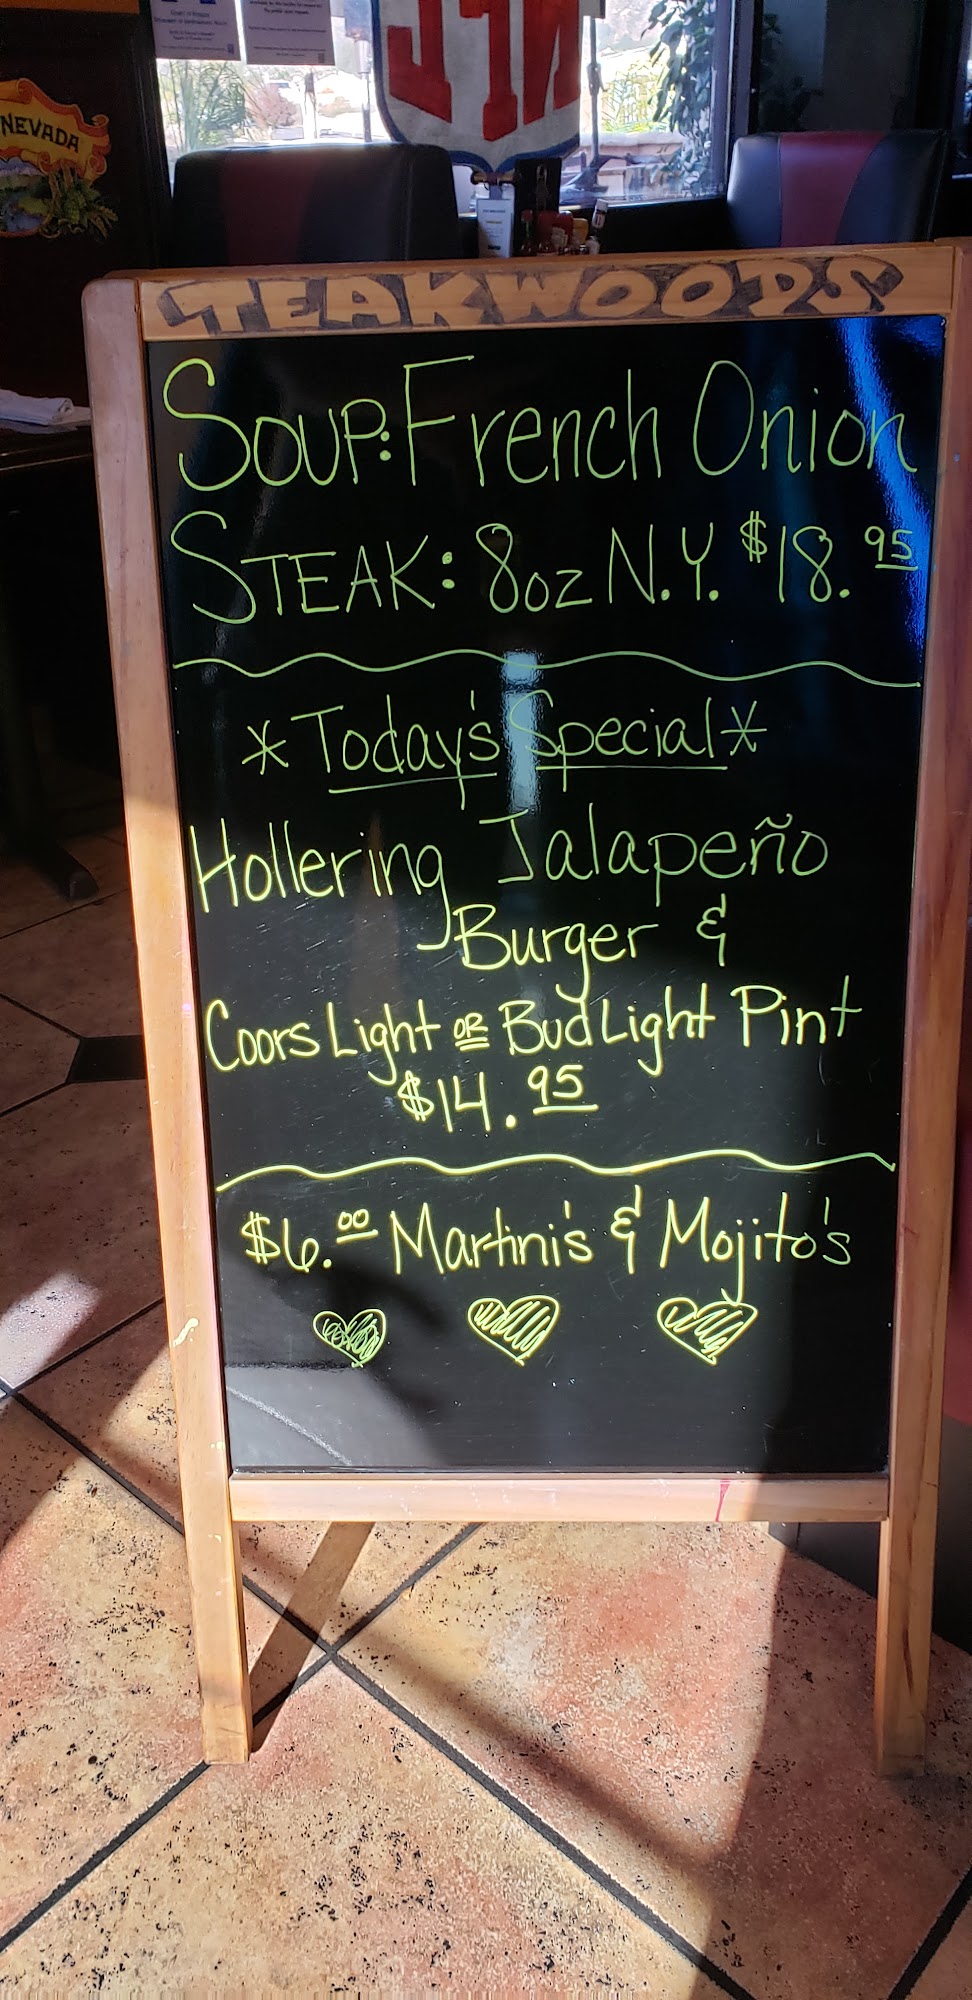 NFL
NEVADA
TEAKWOODS
SOUP: French Onion
STEAK: 8oz N.Y. $18.95
*Today's Special*
Hollering Jalapeño
Burger &
Coors Light OR Bud Light Pint
$14.95
$6.00 Martini's & Mojito's